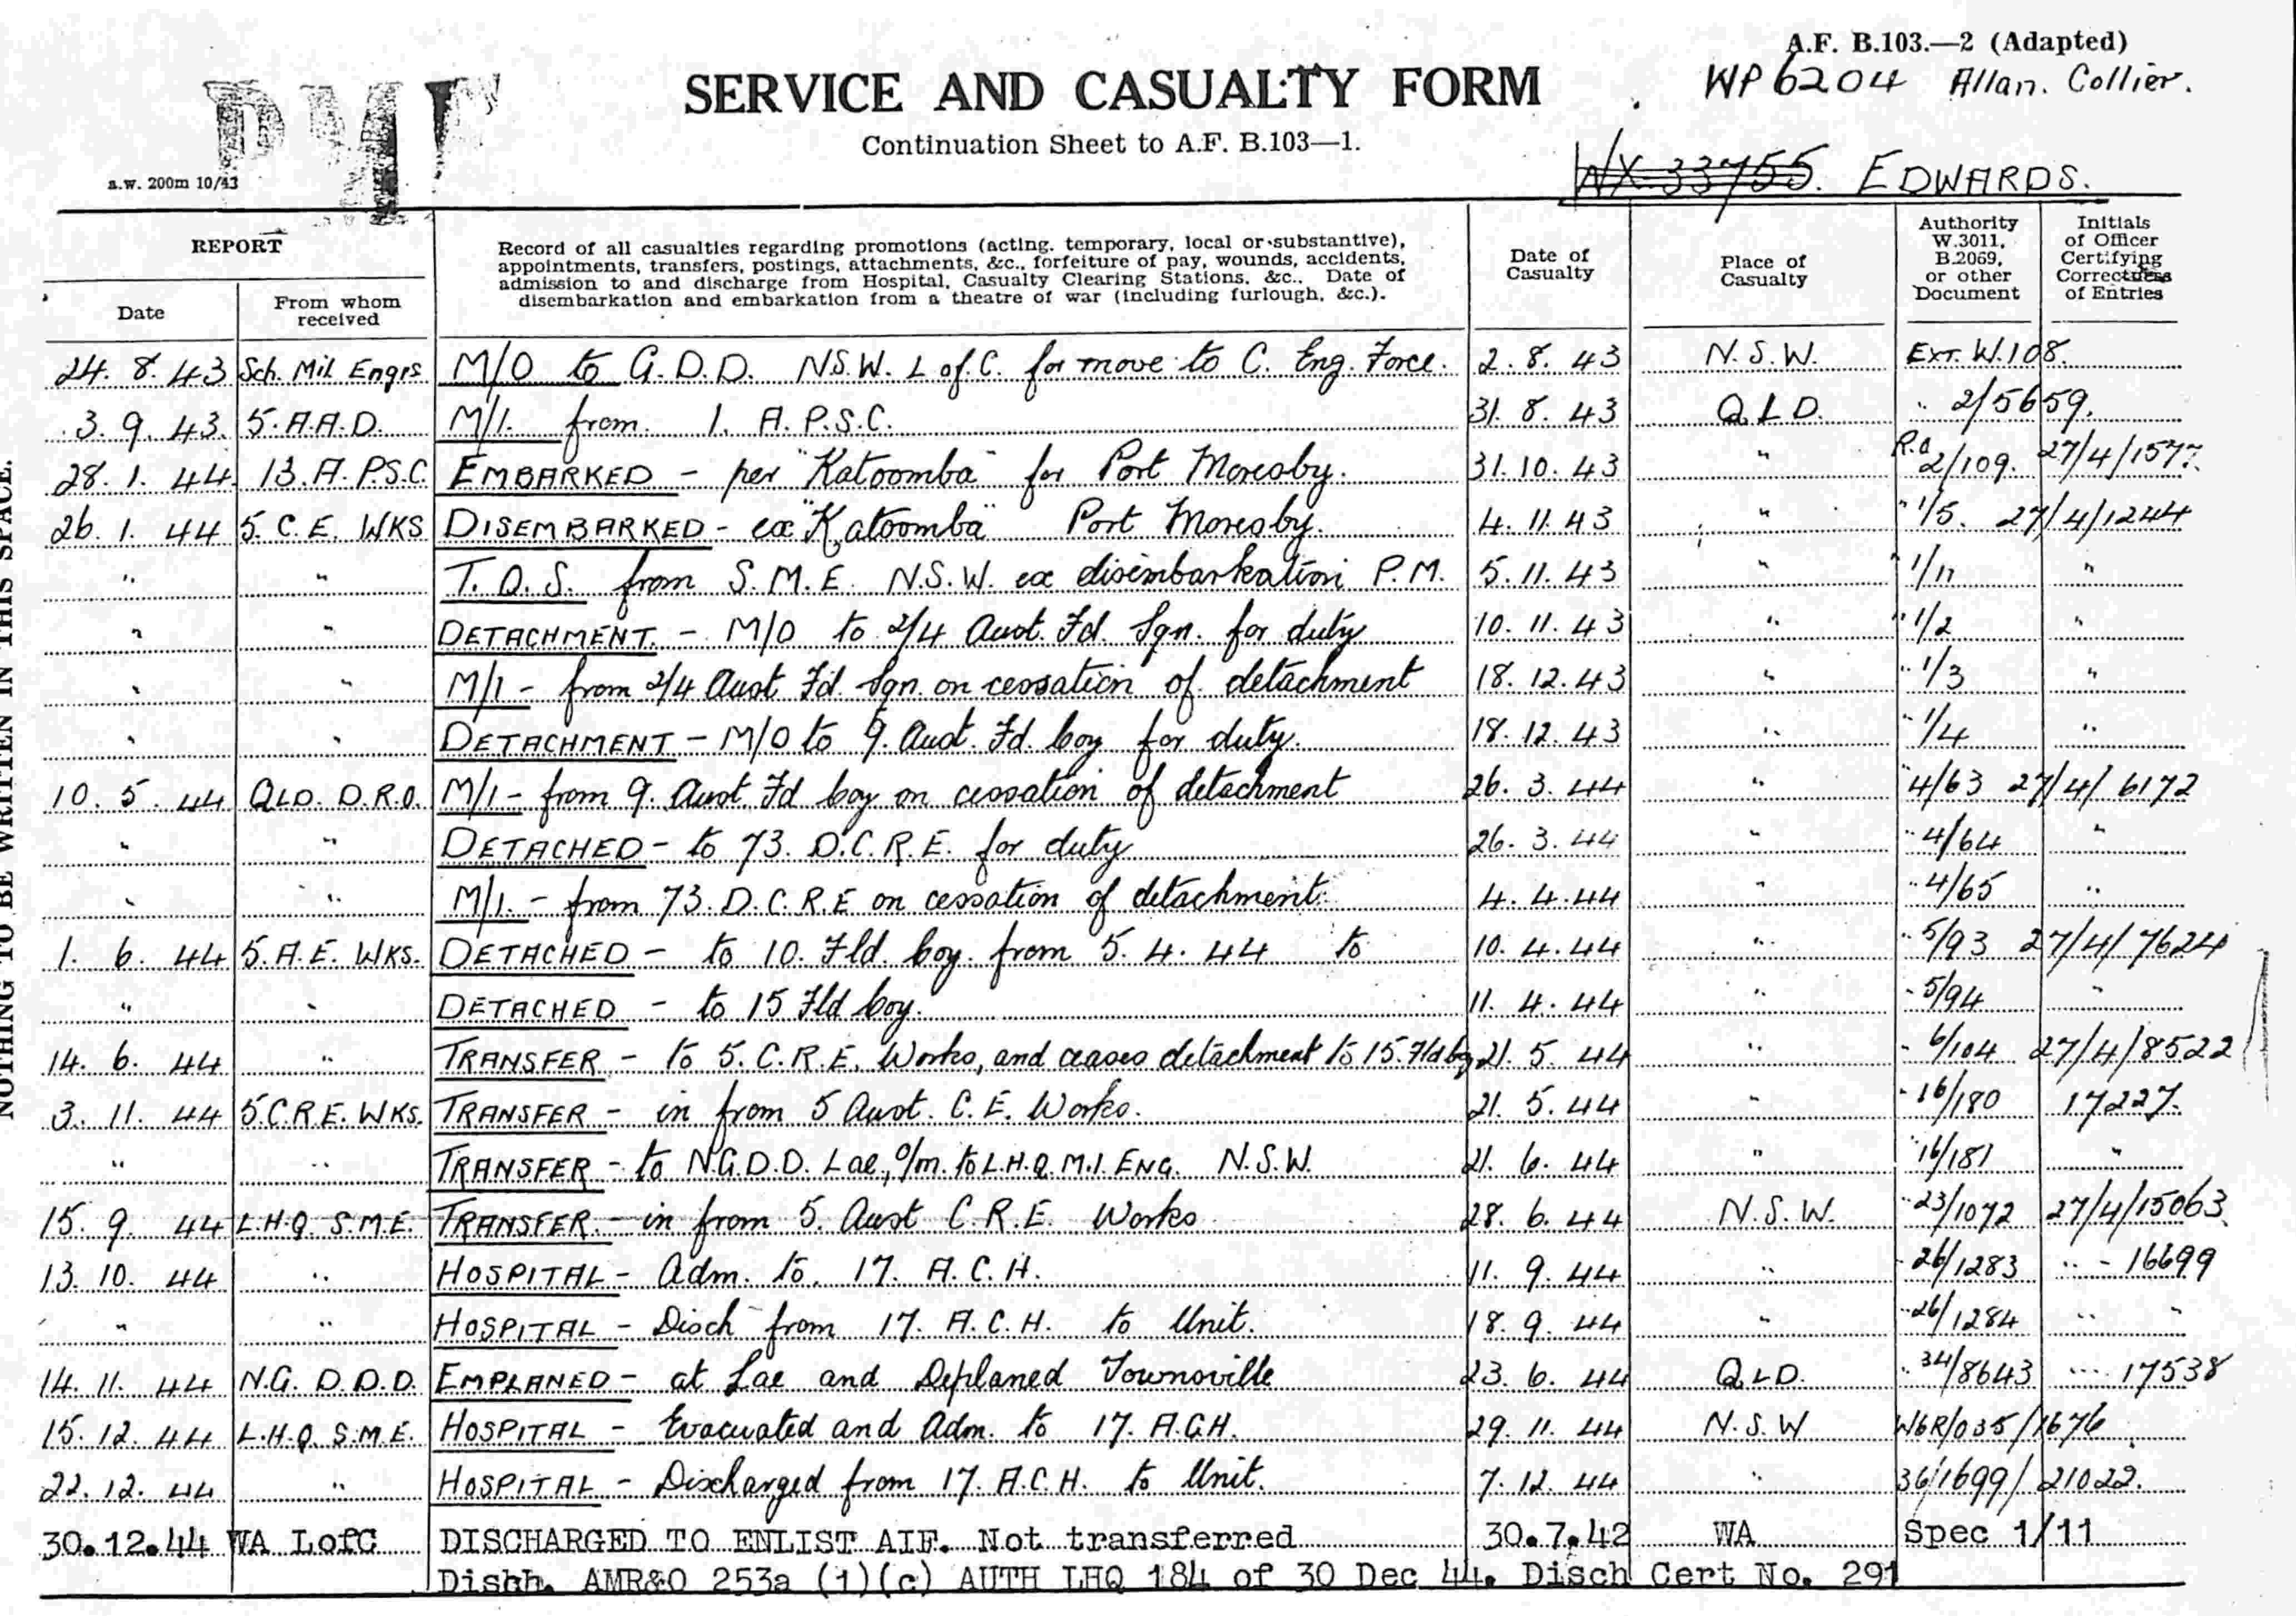 A.F. B.103.—2 (Adapted)
WP 6204 Allan. Collier.
SERVICE AND CASUALTY FORM
Continuation Sheet to A.F. B.103—1.
a.w. 200m 10/43
WX 33755. EDWARDS.
NOTHING TO BE WRITTEN IN THIS SPACE.
REPORT
Date
From whom received
Record of all casualties regarding promotions (acting, temporary, local or substantive),
appointments, transfers, postings, attachments, &c., forfeiture of pay, wounds, accidents,
admission to and discharge from Hospital, Casualty Clearing Stations, &c., Date of
disembarkation and embarkation from a theatre of war (including furlough, &c.).
Date of Casualty
Place of Casualty
Authority W.3011, B.2069, or other Document
Initials of Officer Certifying Correctness of Entries
24. 8. 43 Sch. Mil Engrs M/O to G.D.D. N.S.W. L of C. for move to C. Eng. Force. 2. 8. 43 N.S.W. EXT. W.108.
3. 9. 43. 5. A.A.D. M/I. from 1. A.P.S.C. 31. 8. 43 QLD. " 2/5659.
28. 1. 44 13. A.P.S.C. EMBARKED - per "Katoomba" for Port Moresby. 31. 10. 43 " R.O 2/109. 27/4/1577.
26. 1. 44 5. C.E. WKS DISEMBARKED - ex "Katoomba" Port Moresby. 4. 11. 43 " " 1/5. 27/4/1244
" " T.O.S. from S.M.E. N.S.W. ex disembarkation P.M. 5. 11. 43 " " 1/11 "
" " DETACHMENT. - M/O to 2/4 Aust. Fd. Sqn. for duty 10. 11. 43 " " 1/2 "
" " M/I - from 2/4 Aust Fd. Sqn. on cessation of detachment 18. 12. 43 " " 1/3 "
" " DETACHMENT - M/O to 9. Aust. Fd. Coy for duty. 18. 12. 43 " " 1/4 "
10. 5. 44 QLD. D.R.O. M/I - from 9. Aust. Fd Coy on cessation of detachment 26. 3. 44 " " 4/63 27/4/6172
" " DETACHED - to 73. D.C.R.E. for duty 26. 3. 44 " " 4/64 "
" " M/I. - from 73. D.C.R.E on cessation of detachment. 4. 4. 44 " " 4/65 "
1. 6. 44 5. A.E. WKS. DETACHED - to 10. Fld. Coy. from 5. 4. 44 to 10. 4. 44 " " 5/93 27/4/7624
" " DETACHED - to 15 Fld Coy. 11. 4. 44 " " 5/94 "
14. 6. 44 " TRANSFER - to 5. C.R.E. Works, and ceases detachment to 15. Fld Coy 21. 5. 44 " " 6/104 27/4/8522
3. 11. 44 5. C.R.E. WKS. TRANSFER - in from 5 Aust. C.E. Works. 21. 5. 44 " " 16/180 17227.
" " TRANSFER - to N.G.D.D. Lae, o/m. to L.H.Q. M.I. ENG. N.S.W. 21. 6. 44 " " 16/181 "
15. 9. 44 L.H.Q. S.M.E. TRANSFER. - in from 5. Aust C.R.E. Works 28. 6. 44 N.S.W. " 23/1072 27/4/15063.
13. 10. 44 " HOSPITAL - Adm. to. 17. A.C.H. 11. 9. 44 " " 26/1283 " - 16699
" " HOSPITAL - Disch from 17. A.C.H. to Unit. 18. 9. 44 " " 26/1284 " "
14. 11. 44 N.G. D.D.D. EMPLANED - at Lae and Deplaned Townsville 23. 6. 44 QLD. " 34/8643 " 17538
15. 12. 44 L.H.Q. S.M.E. HOSPITAL - Evacuated and Adm. to 17. A.G.H. 29. 11. 44 N.S.W W6R/035/1676
22. 12. 44 " HOSPITAL - Discharged from 17. A.C.H. to Unit. 7. 12. 44 " 36/1699/ 21022.
30.12.44 WA LofC DISCHARGED TO ENLIST AIF. Not transferred 30.7.42 WA Spec 1/11
Dishh. AMR&O 253a (1)(c) AUTH LHQ 184 of 30 Dec 44. Disch Cert No. 291